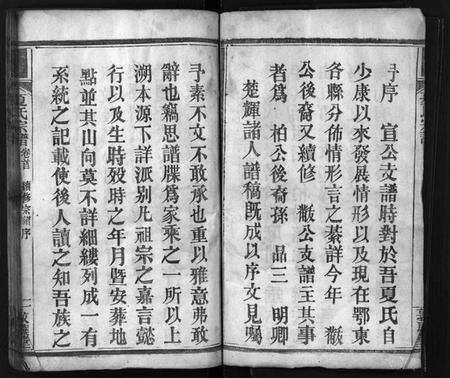 予序　宣公支譜時對於吾夏氏自
少康以來發展情形以及現在鄂東
各縣分佈情形言之綦詳今年　㪚
公後裔又續修　㪚公支譜王其事
者爲　柏公後裔孫　品三　明卿
楚輝諸人譜稿既成以序文見囑
予素不文不敢承也重以雅意弗敢
辭也竊思譜牒爲家乘之一所以上
溯本源下詳派别凡祖宗之嘉言懿
行以及生時歿時之年月暨安葬地
點並其山向莫不詳細縷列成一有
系統之記載使後人讀之知吾族之
夏氏宗譜 續修宗譜序